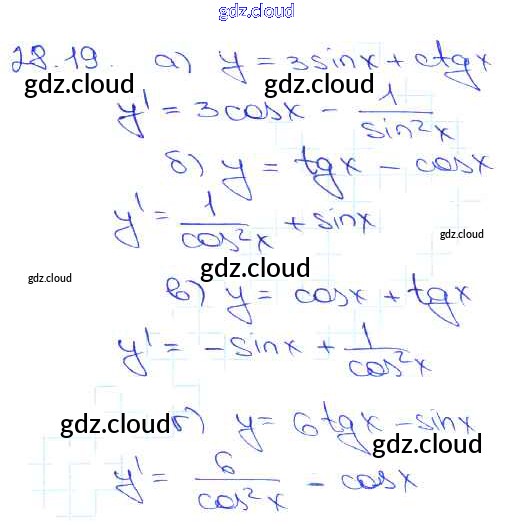 gdz.cloud
28.19. а) y = 3sinx + ctgx
gdz.cloud gdz.cloud
y' = 3cosx - 1/sin²x
б) y = tgx - cosx
y' = 1/cos²x + sinx
gdz.cloud
gdz.cloud gdz.cloud
в) y = cosx + tgx
y' = -sinx + 1/cos²x
gdz.cloud г) y = 6tgx - sinx
gdz.cloud
y' = 6/cos²x - cosx